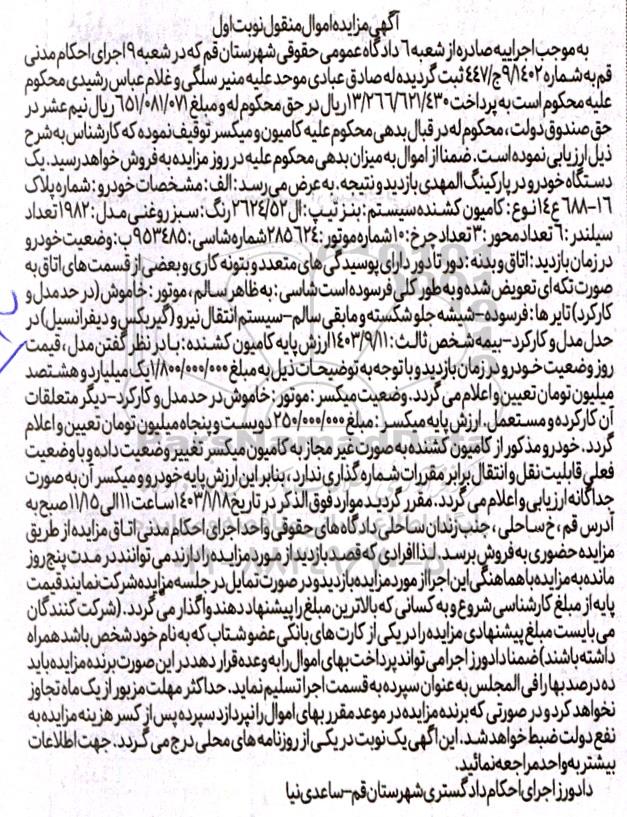 آگهی مزایده اموال منقول نوبت اول
به موجب اجراییه صادره از شعبه ۶ دادگاه عمومی حقوقی شهرستان قم که در شعبه ۹ اجرای احکام مدنی
قم به شماره ۹/۱۴۰۲ج/۴۴۷ ثبت گردیده له صادق عبادی موحد علیه منیر سلگی و غلام عباس رشیدی محکوم
علیه محکوم است به پرداخت ۱۳/۲۶۶/۶۲۱/۴۳۰ ریال در حق محکوم له و مبلغ ۶۵۱/۰۸۱/۰۷۱ ریال نیم عشر در
حق صندوق دولت، محکوم له در قبال بدهی محکوم علیه کامیون و میکسر توقیف نموده که کارشناس به شرح
ذیل ارزیابی نموده است. ضمنا از اموال به میزان بدهی محکوم علیه در روز مزایده به فروش خواهد رسید. یک
دستگاه خودرو در پارکینگ المهدی بازدید و نتیجه. به عرض می رسد: الف: مشخصات خودرو: شماره پلاک
۱۶-۶۸۸ع۱۴ نوع: کامیون کشنده سیستم: بنز تیپ: ال ۲۶۲۴/۵۲ رنگ: سبز روغنی مدل: ۱۹۸۲ تعداد
سیلندر: ۶ تعداد محور: ۳ تعداد چرخ: ۱۰ شماره موتور: ۲۸۵۶۲۴ شماره شاسی: ۹۵۳۴۸۵ ب: وضعیت خودرو
در زمان بازدید: اتاق و بدنه: دور تا دور دارای پوسیدگی های متعدد و بتونه کاری و بعضی از قسمت های اتاق به
صورت تکه ای تعویض شده و به طور کلی فرسوده است شاسی: به ظاهر سالم، موتور: خاموش (در حد مدل و
کارکرد) تایر ها: فرسوده-شیشه جلو شکسته و مابقی سالم-سیستم انتقال نیرو (گیربکس و دیفرانسیل) در
حدل مدل و کارکرد-بیمه شخص ثالث: ۱۴۰۳/۹/۱۱ ارزش پایه کامیون کشنده: با در نظر گفتن مدل، قیمت
روز وضعیت خودرو در زمان بازدید و با توجه به توضیحات ذیل به مبلغ ۱/۸۰۰/۰۰۰/۰۰۰ یک میلیارد و هشتصد
میلیون تومان تعیین و اعلام می گردد. وضعیت میکسر: موتور: خاموش در حد مدل و کارکرد-دیگر متعلقات
آن کارکرده و مستعمل. ارزش پایه میکسر: مبلغ ۲۵۰/۰۰۰/۰۰۰ دویست و پنجاه میلیون تومان تعیین و اعلام
گردد. خودرو مذکور از کامیون کشنده به صورت غیر مجاز به کامیون میکسر تغییر وضعیت داده و با وضعیت
فعلی قابلیت نقل و انتقال برابر مقررات شماره گذاری ندارد، بنابر این ارزش پایه خودرو و میکسر آن به صورت
جداگانه ارزیابی و اعلام می گردد. مقرر گردید موارد فوق الذکر در تاریخ ۱۴۰۳/۸/۱۸ ساعت ۱۱ الی ۱۱/۱۵ صبح به
آدرس قم، خ ساحلی، جنب زندان ساحلی دادگاه های حقوقی واحد اجرای احکام مدنی اتاق مزایده از طریق
مزایده حضوری به فروش برسد. لذا افرادی که قصد بازدید از مورد مزایده را دارند می توانند در مدت پنج روز
مانده به مزایده با هماهنگی این اجرا از مورد مزایده بازدید و در صورت تمایل در جلسه مزایده شرکت نمایند قیمت
پایه از مبلغ کارشناسی شروع و به کسانی که بالاترین مبلغ را پیشنهاد دهند واگذار می گردد. (شرکت کنندگان
می بایست مبلغ پیشنهادی مزایده را در یکی از کارت های بانکی عضو شتاب که به نام خود شخص باشد همراه
داشته باشند) ضمنا دادورز اجرا می تواند پرداخت بهای اموال را به وعده قرار دهد در این صورت برنده مزایده باید
ده درصد بها را فی المجلس به عنوان سپرده به قسمت اجرا تسلیم نماید. حداکثر مهلت مزبور از یک ماه تجاوز
نخواهد کرد و در صورتی که برنده مزایده در موعد مقرر بهای اموال را نپردازد سپرده پس از کسر هزینه مزایده به
نفع دولت ضبط خواهد شد. این آگهی یک نوبت در یکی از روزنامه های محلی درج می گردد. جهت اطلاعات
بیشتر به واحد مراجعه نمائید.
دادورز اجرای احکام دادگستری شهرستان قم-ساعدی نیا